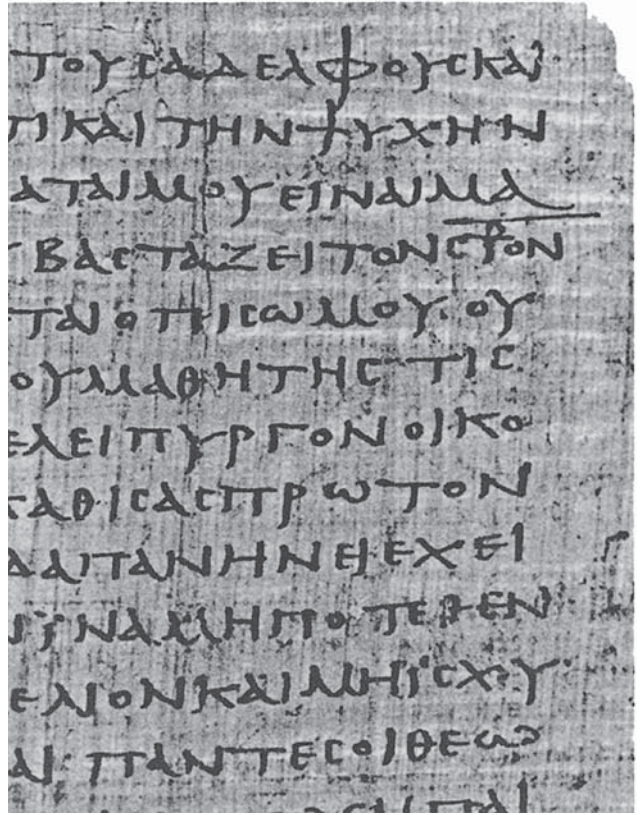 ΤΟΥϹΑΔΕΛΦΟΥϹΚΑΙ
ΤΙΚΑΙΤΗΝΨΥΧΗΝ
ΑΤΑΙΜΟΥΕΙΝΑΙΜΑ
ΒΑϹΤΑΖΕΙΤΟΝϹ⳨ΟΝ
ΤΑΙΟΠΙϹΩΜΟΥ· ΟΥ
ΟΥΜΑΘΗΤΗϹ ΤΙϹ
ΕΛΕΙΠΥΡΓΟΝΟΙΚΟ
ΚΑΘΙϹΑϹΠΡΩΤΟΝ
ΔΑΠΑΝΗΝΕΙΕΧΕΙ
ΝΙΝΑΜΗΠΟΤΕΘΕΝ
ΕΛΙΟΝΚΑΙΜΗΙϹΧΥ
ΑΙ ΠΑΝΤΕϹΟΙΘΕΩ